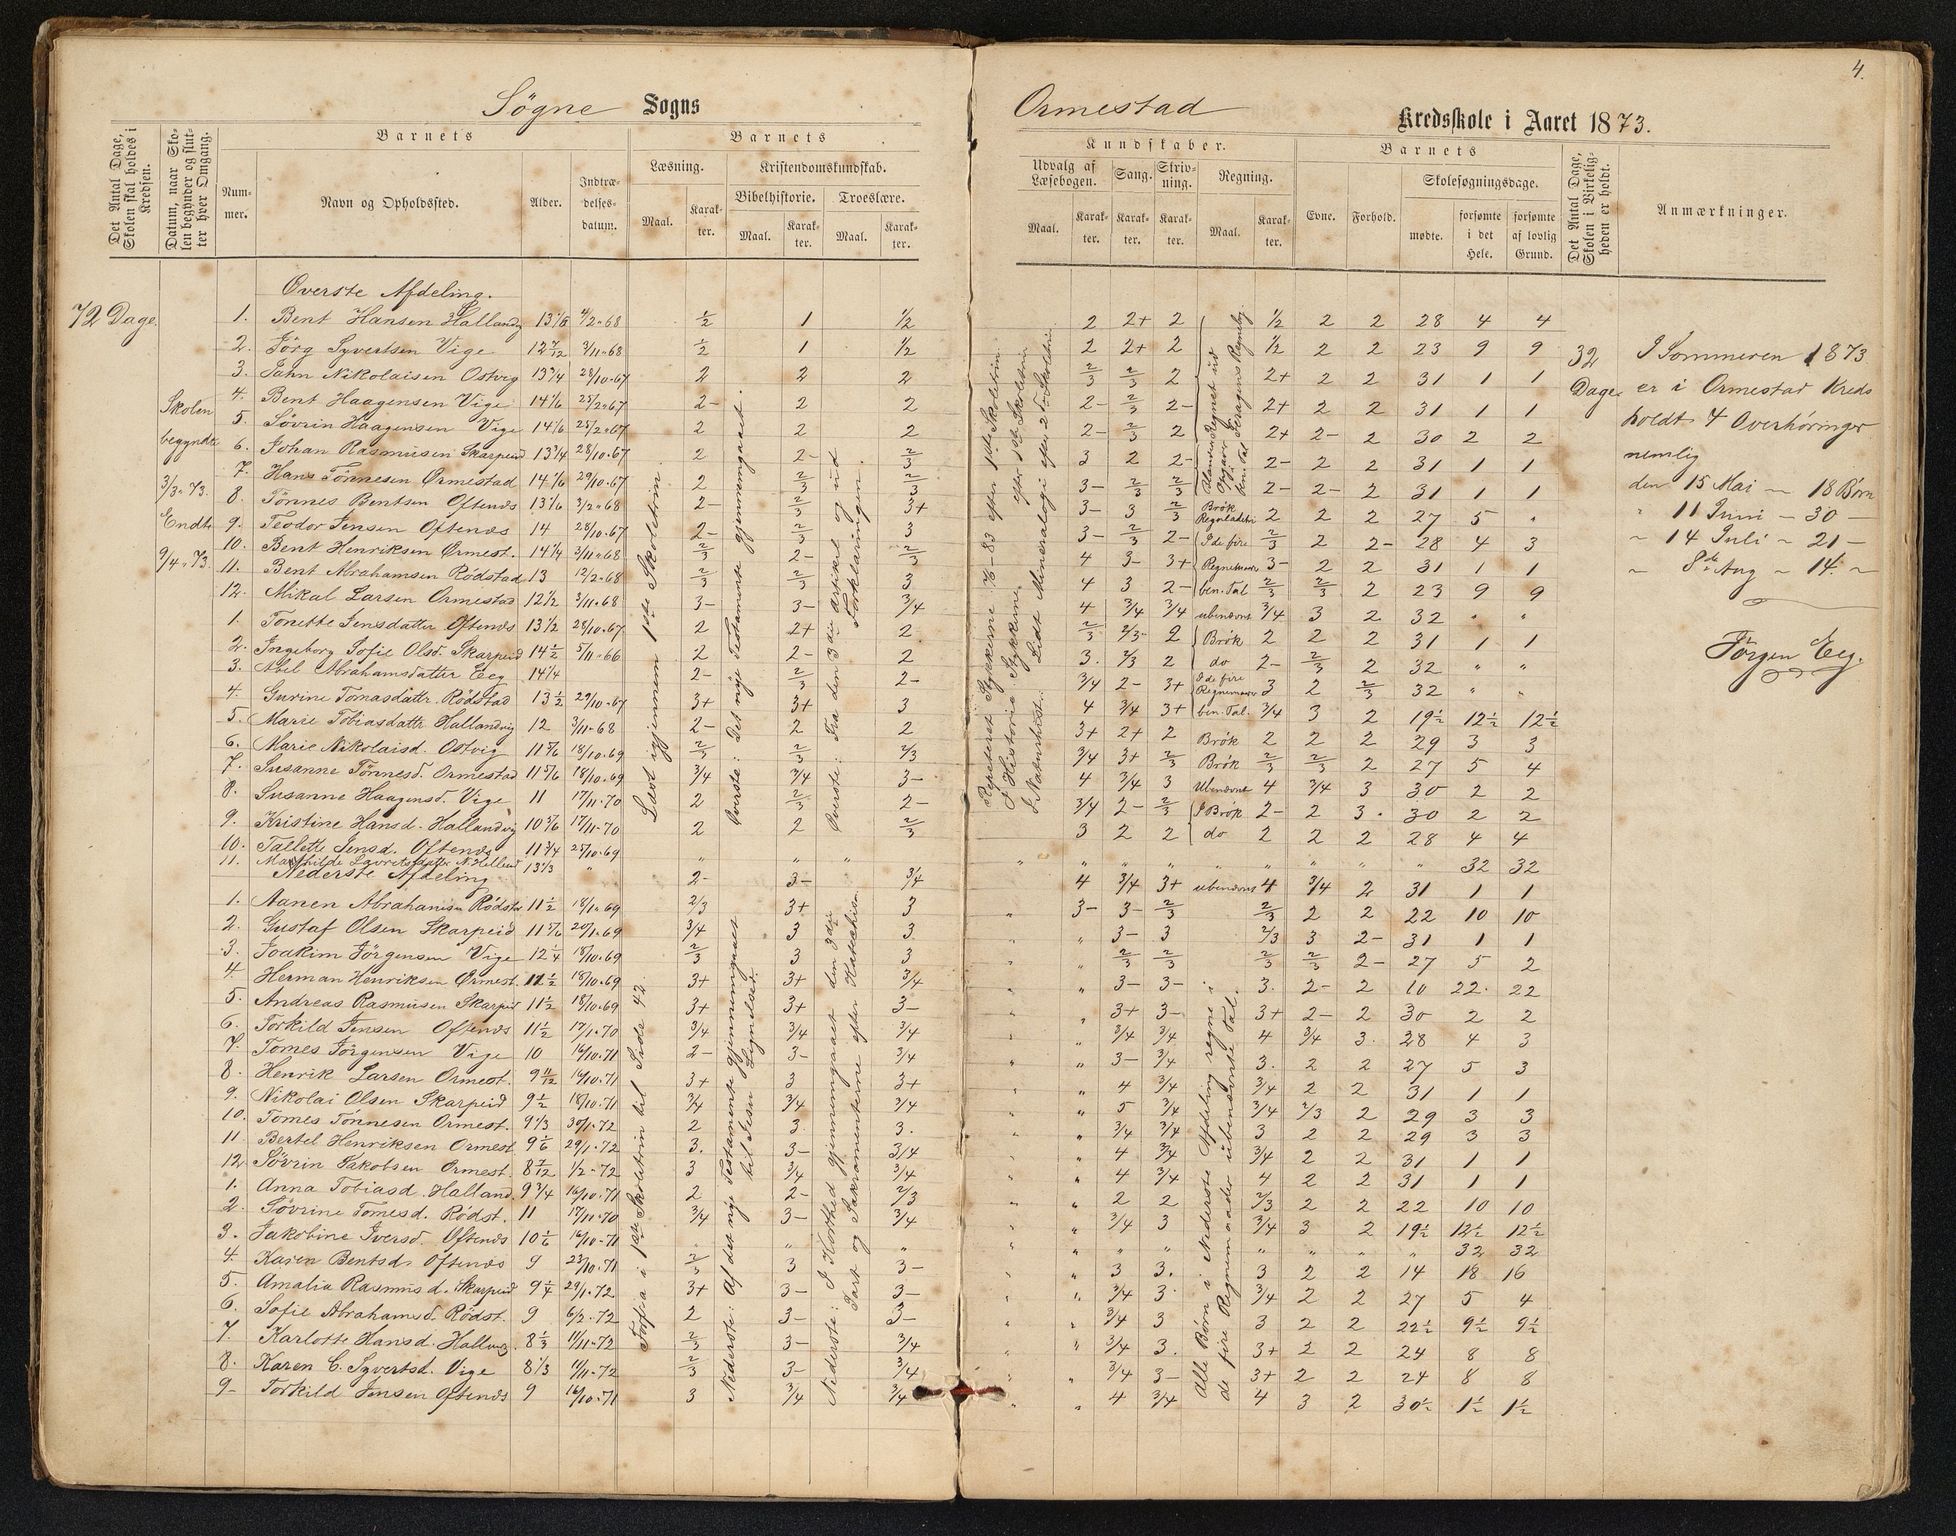 4.
Søgne Sogns
Ormestad Kredsskole i Aaret 1873.
Det Antal Dage, Skolen skal holdes i Kredsen.
Datum, naar Skolen begynder og slutter hver Omgang.
Barnets
Nummer.
Navn og Opholdssted.
Alder.
Indtrædelsesdatum.
Barnets
Læsning.
Maal.
Karakter.
Kristendomskundskab.
Bibelhistorie.
Maal.
Karakter.
Troeslære.
Maal.
Karakter.
Kundskaber.
Udvalg af Læsebogen.
Maal.
Karakter.
Sang.
Karakter.
Skrivning.
Karakter.
Regning.
Maal.
Karakter.
Barnets
Evne.
Forhold.
Skolesøgningsdage.
mødte.
forsømte i det Hele.
forsømte af lovlig Grund.
Det Antal Dage, Skolen i Virkeligheden er holdt.
Anmærkninger.
72 Dage.
Skolen
begyndte
3/3. 73.
Endte
9/4. 73.
Overste Afdeling.
1. Bent Hansen Hallandvig 13 1/6 4/2.68 1/2 1 1/2 2 2+ 2 1/2 2 2 28 4 4
2. Jörg Syvertsen Vige 12 7/12 3/11.68 1/2 1 1/2 2 2+ 2 1/2 2 2 23 9 9
3. Jahn Nikolaisen Ostvig 13 3/4 28/10.67 2 2 2 2/3 2/3 2 2+ 2 2 31 1 1
4. Bent Haagensen Vige 14 1/6 25/2.67 2- 2 2 2- 2/3 2- 2+ 2 2 31 1 1
5. Sövrin Haagensen Vige 14 1/6 25/2.67 2 2 2 2- 2/3 2 2+ 2- 2 30 2 2
6. Johan Rasmusen Skarpeid 13 3/4 28/10.67 2 2- 2/3 3 2 2- 2- 2 2 31 1 1
7. Hans Tönnesen Ormestad 14 1/6 29/10.67 2 2/3 2/3 3- 2/3 2/3 2- 2- 2 31 1 1
8. Tönnes Bentsen Oftenæs 13 1/6 3/2.68 2- 2/3 3+ 3- 3 2/3 2 2 2 27 5 "
9. Teodor Jensen Oftenæs 14 28/10.67 2- 2/3 3 3- 2/3 2- 2/3 2 2- 28 4 3
10. Bent Henriksen Ormest. 14 1/4 3/11.68 2/3 2- 2/3 4 3- 3+ 3- 2 2 31 1 1
11. Bent Abrahamsen Rödstad 13 12/2.68 2/3 2/3 3 4 3 2- 2/3 2/3 2 23 9 9
12. Mikal Larsen Ormestad 12 1/2 3/11.68 3- 3- 3/4 4 3/4 3/4 3/4 3 2 32 " "
1. Tonette Jensdatter Oftenæs 13 1/2 28/10.67 2 2+ 2 2/3 2/3- 2 2 2 2 31 1 1
2. Ingeborg Sofie Olsd. Skarpeid 14 1/2 5/11.66 2 2- 2 3. 2/3 2 2- 2/3 2 32 " "
3. Abel Abrahamsdatter Eeg 14 1/4 2- 2/3 2- 3/4 2- 3+ 3 2 2/3 32 " "
4. Gurine Tomasdattr Rödstad 13 1/2 29/10.67 3+ 3+ 3 4 3/4 3+ 3/4 3 2 19 1/2 12 1/2 12 1/2
5. Marie Tobiasdattr Hallandvig 12 3/11.68 2- 2 2 3+ 2+ 2 2 2 2 29 3 3
6. Marie Nikolaisd. Ostvig 11 5/6 18/10.69 2/3 2/3 2/3 3/4 3+ 2/3 2/3 2/3 2 27 5 4
7. Susanne Tönnesd. Ormestad 11 5/6 18/10.69 3/4 3/4 3- 4 3/4 3 4 3/4 3 30 2 2
8. Susanne Haagensd. Vige 11 17/11.70 2 2/3 2- 3/4 2- 2/3 2- 2 3. 30 2 2
9. Kristine Hansd. Hallandvig 10 5/6 17/11.70 2 2 2/3 3 2 2 2 2 2 28 4 4
10. Tallette Jensd. Oftenæs 11 3/4 25/10.69 " " " " " " " " " " 32 32
11. Mathilde Lauretsdatter N. Helleud 13 1/3 " 2- 3- 3/4 4 3/4 3+ 4 3/4 2 31 1 1
Nederste Afdeling
1. Aanen Abrahamsen Rödstad 11 1/2 18/1.69 2/3 3+ 3 3- 3- 2/3 2/3 2 2 22 10 10
2. Gustaf Olsen Skarpeid 11 5/6 20/1.69 3/4 3 3 3- 3 2/3 3 2- 31 1 1
3. Joakim Jörgensen Vige 12 1/4 18/10.69 2/3 3 3 2/3 2/3 2/3 2/3 2- 27 5 2
4. Herman Henriksen Ormest. 11 1/2 18/10.69 3+ 3+ 3/4 3- 3- 3. 2- 2 10 22. 22
5. Andreas Rasmusen Skarpeid 11 1/2 18/10.69 3+ 3+ 3- 3+ 3- 3+ 2- 2 30 2 2
6. Torkild Jensen Oftenæs 11 1/2 17/1.70 3/4 3/4 3/4 3/4 3/4 4 3/4 3. 28 4 3
7. Tomes Jörgensen Vige 10 16/10.71 2- 3- 3/4 3- 3/4 3. 2 2 27 5 3
8. Henrik Larsen Ormest. 9 11/12 16/10.71 3+ 3 3+ 4 3/4 3/4 2 2 31 1 1
9. Nikolai Olsen Skarpeid 9 1/2 18/10.71 3/4 3/4 3/4 5 3/4 3/4 2/3 2 29 3 3
10. Tomes Tönnesen Ormest. 9 1/3 30/1.72 2 3. 3. 3/4 3/4 3 2 2 29 3 3
11. Bertel Henriksen Ormest 9 1/6 29/1.72 3. 3- 3/4 4 3/4 3/4 2 2 31 1 1
12. Sövrin Jakobsen Ormest. 8 7/12 1/2.72 3 3/4 3/4 4 3/4 4 2 2 31 1 1
1. Anna Tobiasd. Halland. 9 3/4 16/10.71 2 2- 2/3 2 2 2/3 2 2 22 10 10
2. Sövrine Tomesd. Rödst. 11 17/11.70 3/4 3- 3/4 3/4 3 3/4 3 2 19 1/2 12 1/2 12 1/2
3. Jakobine Iversd. Oftenæs 10 1/6 16/10.71 " " " " " " " " " 32 32
4. Karen Bentsd. Oftenæs 9 23/10.71 2/3 3 3- 3 3. 3 2 2 14 18 16
5. Amalia Rasmusd. Skarpeid 9 1/4 29/1.72 3+ 3- 3- 3/4 3. 3/4 2 2 27 5 4
6. Sofie Abrahamsd. Rödst. 9 6/2.72 2 3- 3- 3/4 3 3 2 2 22 1/2 9 1/2 9 1/2
7. Karlotte Hansd. Halland. 8 1/3 11/11.72 2/3 3- 3/4 3/4 3. 3+ 2 2 24 8 8
8. Karen C. Syvertsd. Vige 8 1/3 11/11.72 2/3 3- 3/4 3/4 3- 3+ 2 2 24 8 8
9- Torkild Jensen Oftenæs 9 16/10.71 3 3/4 3/4 4 3/4 4 3 2 30 1/2 1 1/2 1 1/2
Læst igjennem 1ste Skoletrin.
i 1ste Skoletrin til Side 42.
Øverste: Det nye Testamente gjennemgaaet.
Nederste: Af det nye Testamente gjennemgaaet til Jesu Lignelser.
Øverste: Fra den 3die Artikel og ud Forklaringen.
Nederste: I Korthed gjennemgaaet den 3die Part og Sakramenterne efter Katekism.
Repeteret Stykkerne 76-83 efter 1ste Skoletrin.
I Historia Stykkerne efter 1ste Skoletrin
I Naturhist. Lidt Mineralogi efter 2 Skoletrin.
Brök
I de fire Regnemaader ben. Tal
ubenævnt
Brök
do
I de fire Regnemaader ben. Tal.
Brök
Brök
Ubenævnt
I Brök
do
ubenævnt
Alle Børn i Nederste Afdeling regne i de fire Regnemaader i ubenævnte Tal.
32
Dage
I Sommeren 1873
er i Ormestad Kreds
holdt 4 Overhøringer
nemlig
den 15 Mai — 18 Børn
" 11 Juni — 30 —
" 14 Juli — 21 —
" 8de Aug — 14. —
Jörgen Eeg.